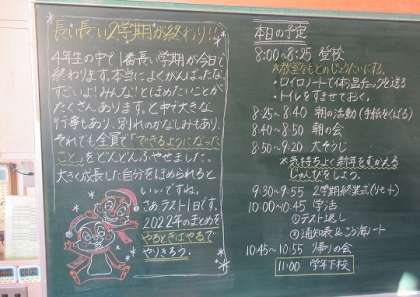 長い長い2学期が終わり!!
4年生の中で1番長い学期が今日で
終わります。本当によくがんばったな、
すごい!みんな!とほめたいことが
たくさんあります。と中で大きな
行事もあり、別れのかなしみもあり、
それでも全員で「できるようになった
こと」をどんどんふやせました。
大きく成長した自分をほめられると
いいですね。
さあラスト1日です。
2022年のまとめを
やるときはやるで
やりきろう。
本日の予定
8:00~8:25 登校
・ロイロノートで体温チェックを送る
・トイレをすませておく。
8:25~8:40 朝の活動(手紙をくばる)
8:40~8:50 朝の会
8:50~9:20 大そうじ
※気持ちよく新年をむかえる
じゅんびをしよう。
9:30~9:55 2学期終業式(リモート)
10:00~10:45 学活
①テスト返し
10:45~10:55 帰りの会
11:00 学年下校